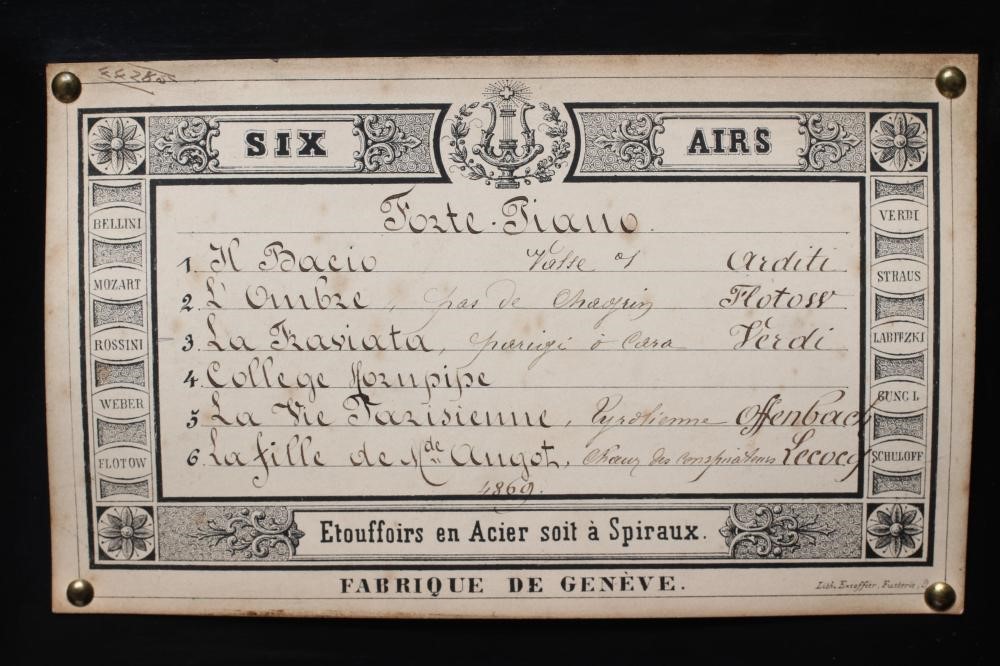 44280
SIX AIRS
Forte-Piano.
1. Il Bacio Valse d' Arditi
2. L'Ombre, pas de Chagrin Flotow
3. La Traviata, parigi ò cara Verdi
4. College Hornpipe
5. La Vie Parisienne, Tyrolienne Offenbach
6. La fille de Mde Angot, Chœur des conspirateurs Lecocq
4869.
BELLINI
MOZART
ROSSINI
WEBER
FLOTOW
VERDI
STRAUS
LABITZKI
GUNGL
SCHULOFF
Etouffoirs en Acier soit à Spiraux.
FABRIQUE DE GENÈVE.
Lith. Escoffier, Fusterie,